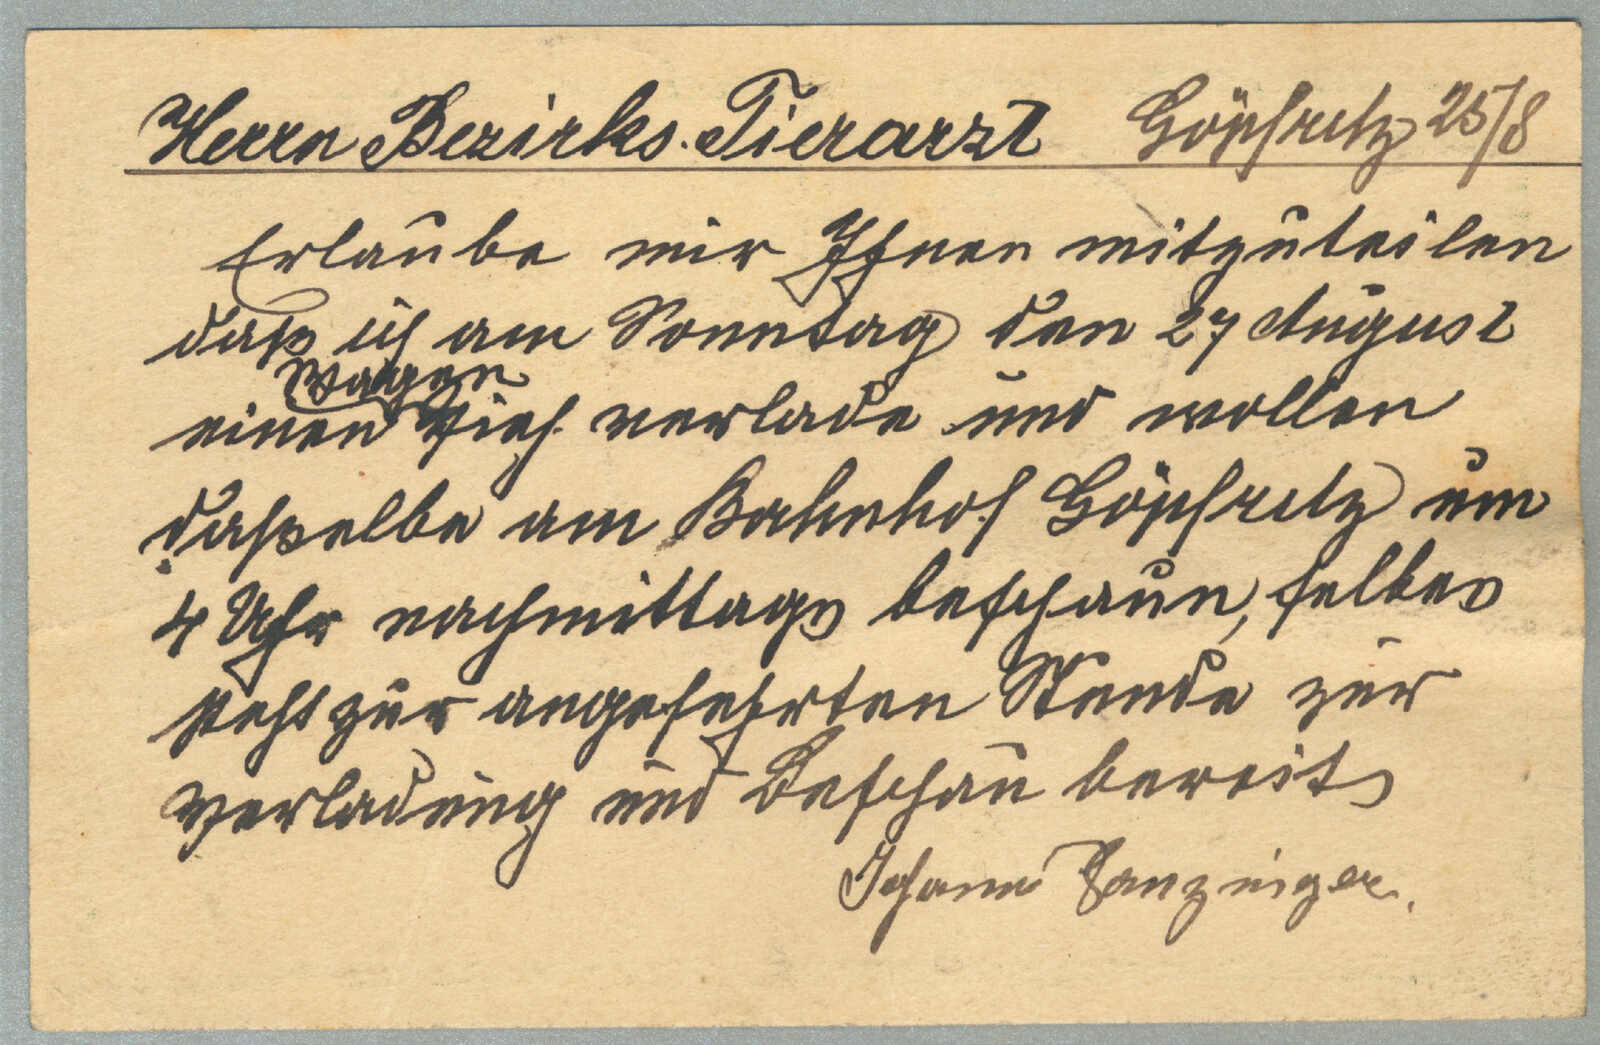 Herrn Bezirks-Tierarzt Göpfritz 25/8
Erlaube mir Ihnen mitzuteilen
daß ich am Sonntag den 27 August
Wagen
einen Vieh verlade und wollen
daßselbe am Bahnhof Göpfritz um
4 Uhr nachmittags beschaun, selbes
steht zur angefehrten Stunde zur
Verladung und Beschau bereits
Johann